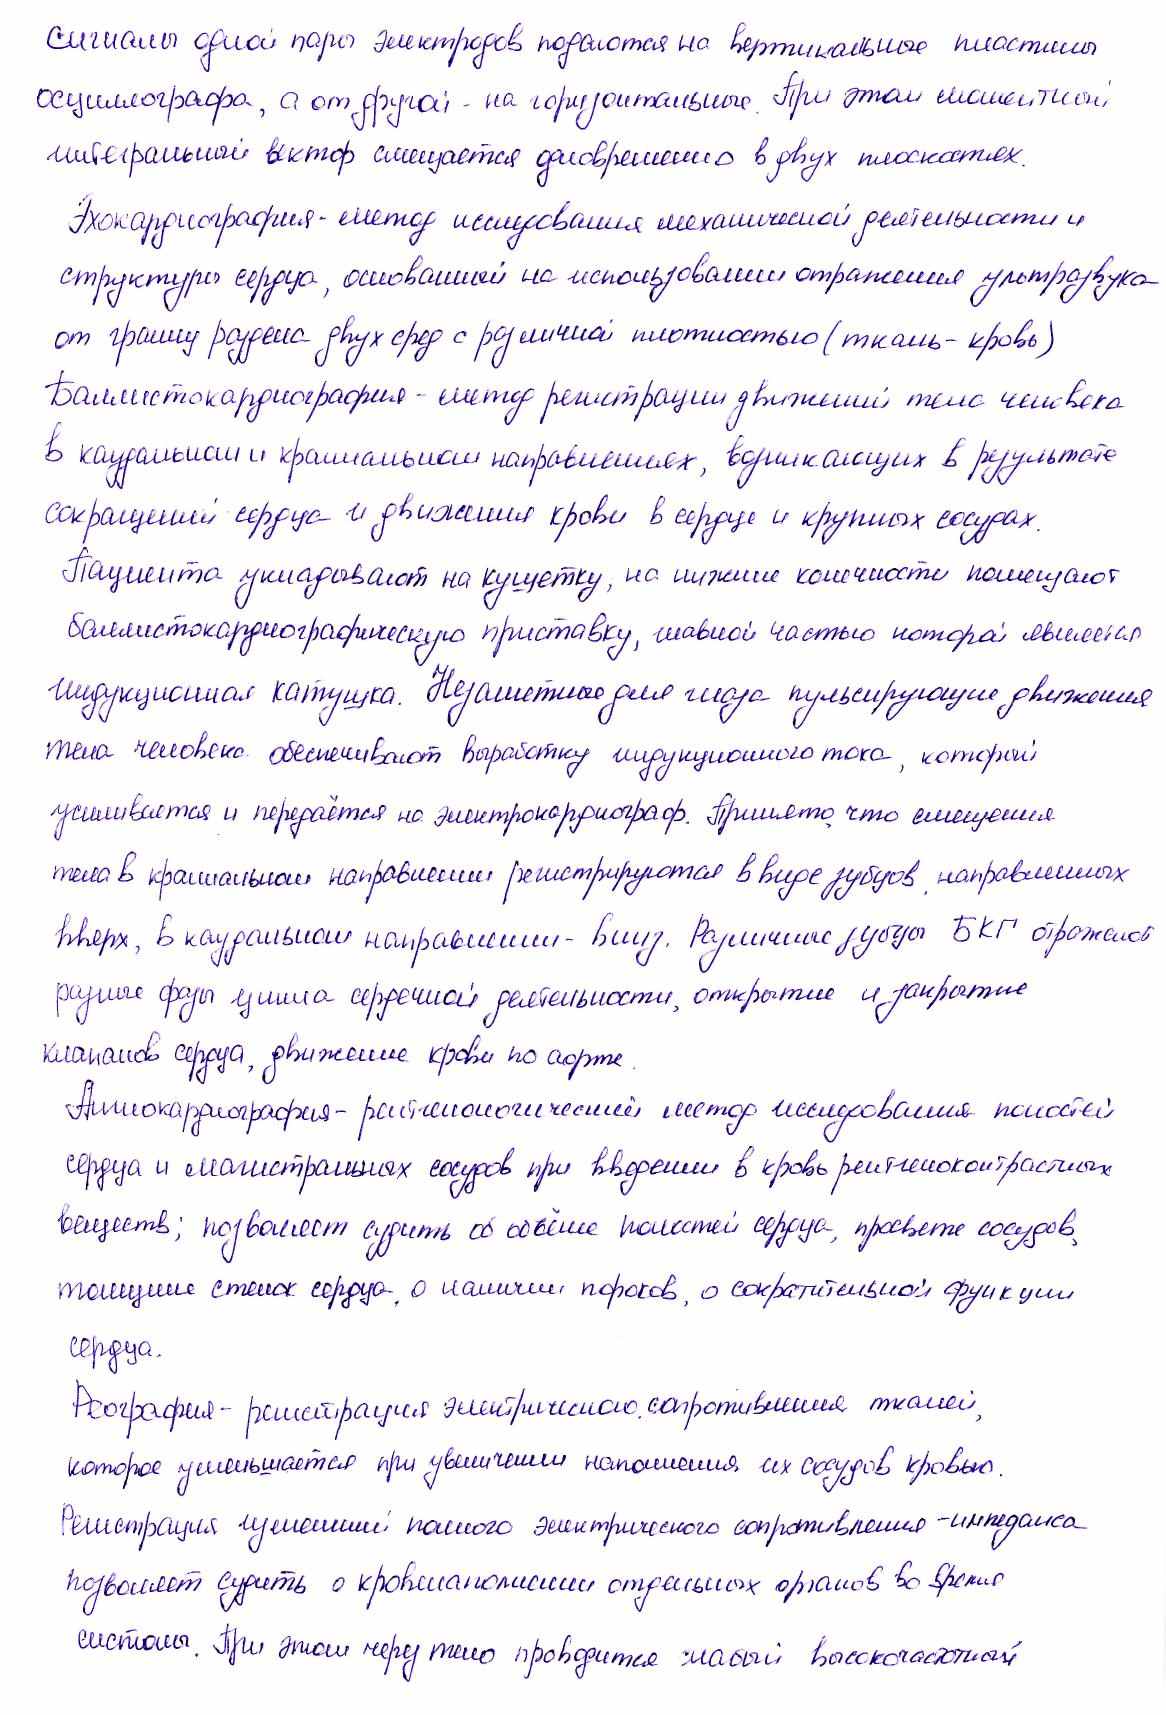 сигналы одной пары электродов подаются на вертикальные пластины
осциллографа, а от другой - на горизонтальные. При этом моментный
интегральный вектор смещается одновременно в двух плоскостях.
Эхокардиография - метод исследования механической деятельности и
структуры сердца, основанный на использовании отражения ультразвука
от границ раздела двух сред с различной плотностью (ткань - кровь)
Баллистокардиография - метод регистрации движений тела человека
в каудальном и краниальном направлениях, возникающих в результате
сокращений сердца и движения крови в сердце и крупных сосудах.
Пациента укладывают на кушетку, на нижние конечности помещают
баллистокардиографическую приставку, главной частью которой является
индукционная катушка. Незаметные для глаза пульсирующие движения
тела человека обеспечивают выработку индукционного тока, который
усиливается и передаётся на электрокардиограф. Принято, что смещения
тела в краниальном направлении регистрируются в виде зубцов, направленных
вверх, в каудальном направлении - вниз. Различные зубцы БКГ отражают
разные фазы цикла сердечной деятельности, открытие и закрытие
клапанов сердца, движение крови по аорте.
Ангиокардиография - рентгенологический метод исследования полостей
сердца и магистральных сосудов при введении в кровь рентгеноконтрастных
веществ; позволяет судить об объёме полостей сердца, просвете сосудов,
толщине стенок сердца, о наличии пороков, о сократительной функции
сердца.
Реография - регистрация электрического сопротивления тканей,
которое уменьшается при увеличении наполнения их сосудов кровью.
Регистрация изменений полного электрического сопротивления - импеданса
позволяет судить о кровенаполнении отдельных органов во время
систолы. При этом через тело проводится слабый высокочастотный